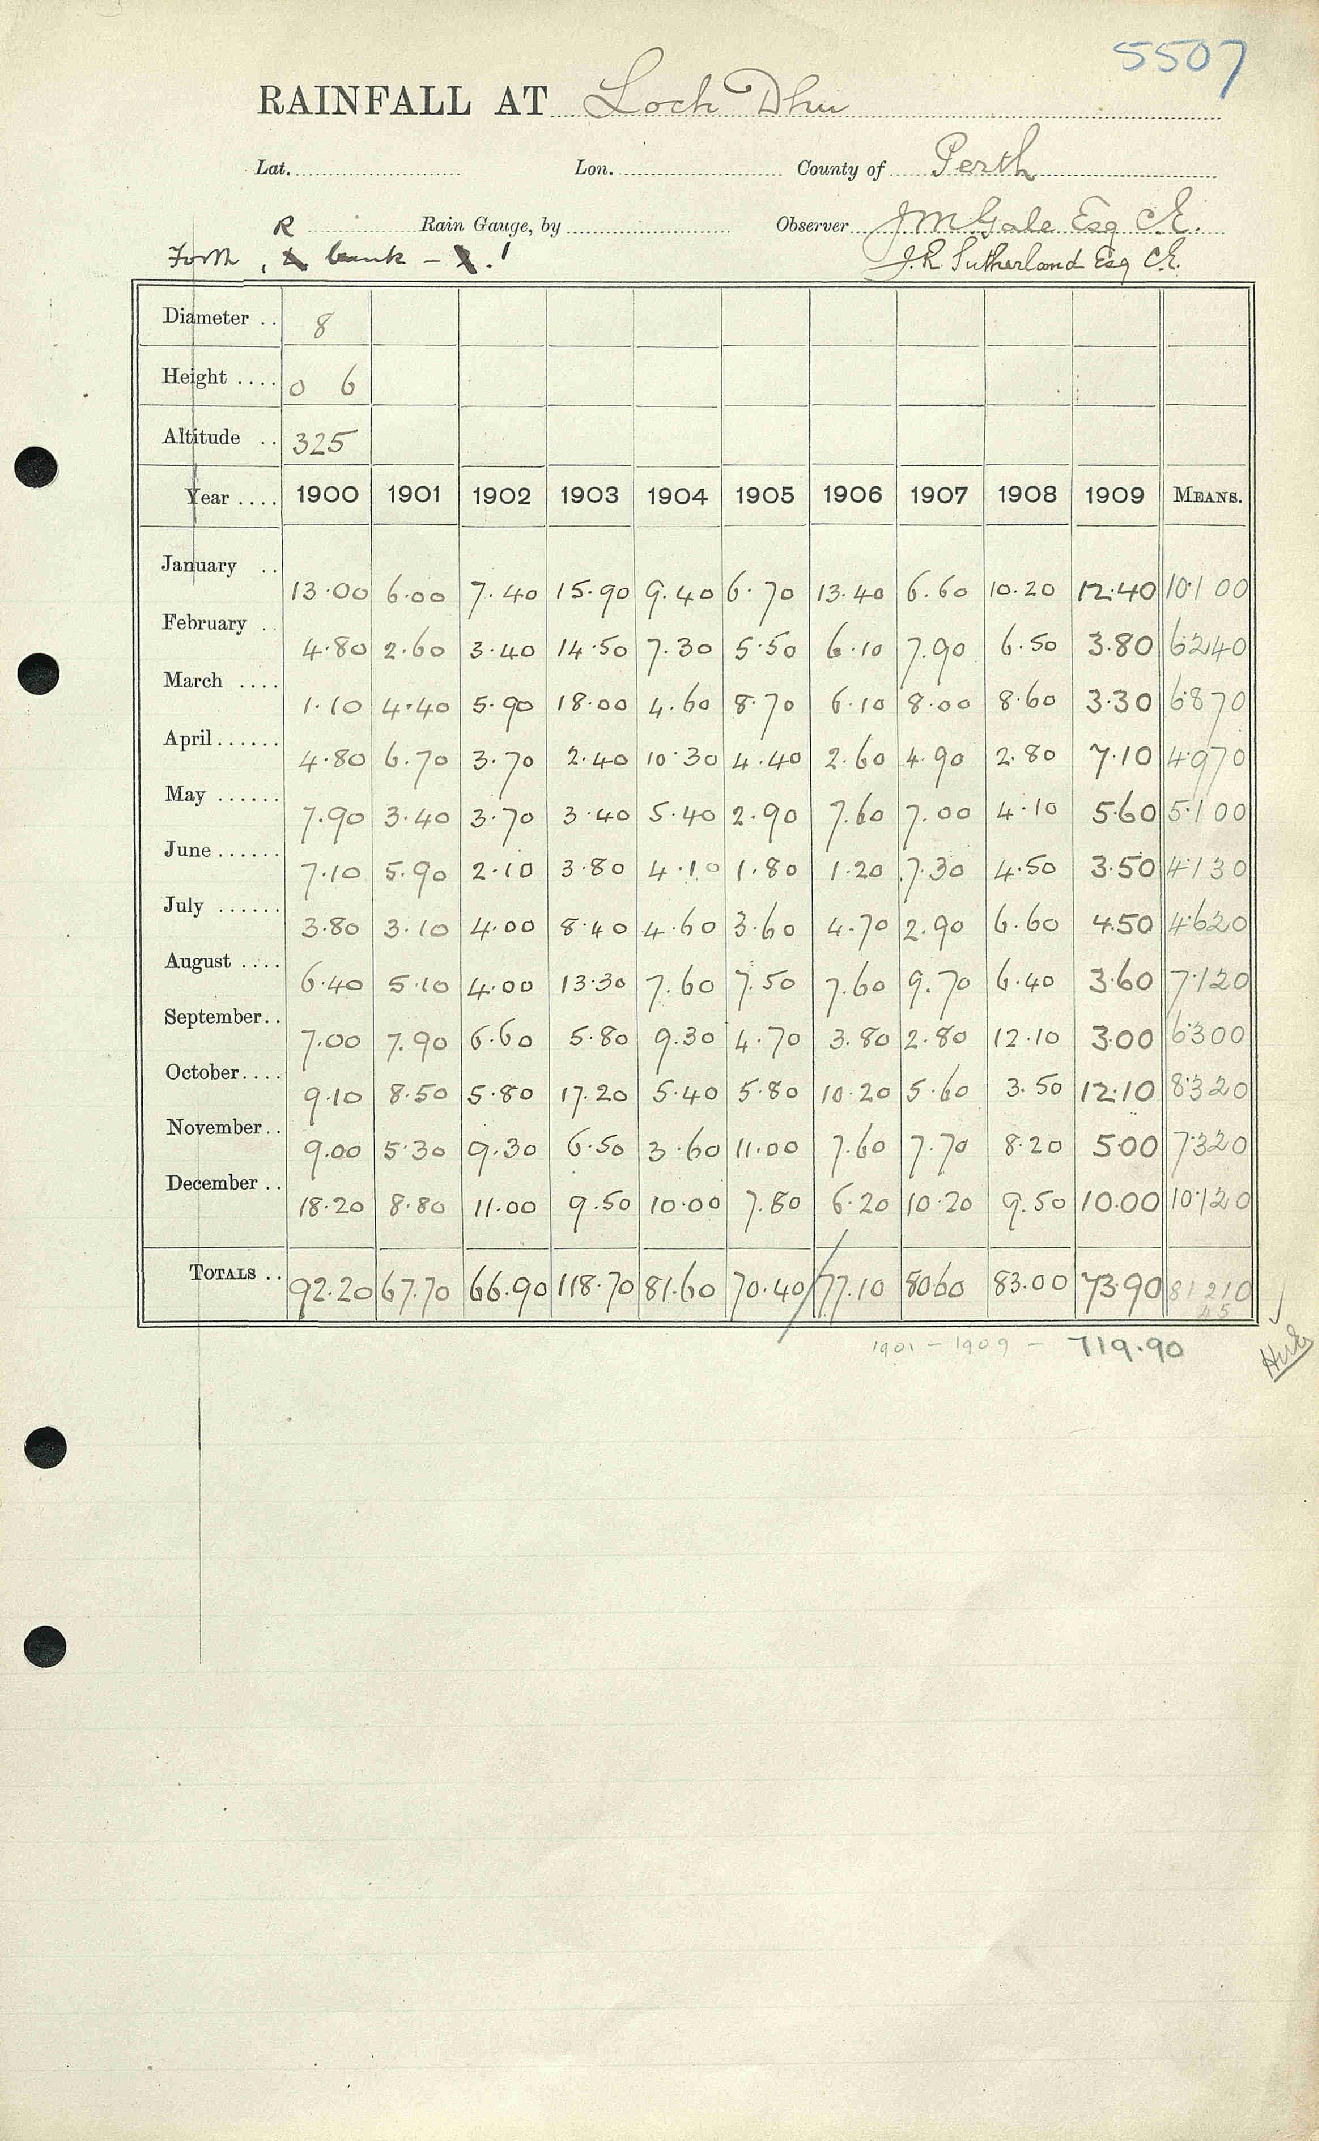 5507
RAINFALL AT Loch Dhu
Lat. Lon. County of Perth
R Rain Gauge, by Observer J M Gale Esq C.E.
Forth, bank - 1 J. R. Sutherland Esq C.E.
Diameter .. 8
Height .... 0 6
Altitude .. 325
Year .... 1900 1901 1902 1903 1904 1905 1906 1907 1908 1909 MEANS.
January .. 13.00 6.00 7.40 15.90 9.40 6.70 13.40 6.60 10.20 12.40 10.100
February . 4.80 2.60 3.40 14.50 7.30 5.50 6.10 7.90 6.50 3.80 6.240
March .... 1.10 4.40 5.90 18.00 4.60 8.70 6.10 8.00 8.60 3.30 6.870
April ...... 4.80 6.70 3.70 2.40 10.30 4.40 2.60 4.90 2.80 7.10 4.970
May ...... 7.90 3.40 3.70 3.40 5.40 2.90 7.60 7.00 4.10 5.60 5.100
June ...... 7.10 5.90 2.10 3.80 4.10 1.80 1.20 7.30 4.50 3.50 4.130
July ...... 3.80 3.10 4.00 8.40 4.60 3.60 4.70 2.90 6.60 4.50 4.620
August .... 6.40 5.10 4.00 13.30 7.60 7.50 7.60 9.70 6.40 3.60 7.120
September.. 7.00 7.90 6.60 5.80 9.30 4.70 3.80 2.80 12.10 3.00 6.300
October.... 9.10 8.50 5.80 17.20 5.40 5.80 10.20 5.60 3.50 12.10 8.320
November.. 9.00 5.30 9.30 6.50 3.60 11.00 7.60 7.70 8.20 5.00 7.320
December .. 18.20 8.80 11.00 9.50 10.00 7.80 6.20 10.20 9.50 10.00 10.120
TOTALS .. 92.20 67.70 66.90 118.70 81.60 70.40 77.10 80.60 83.00 73.90 81 210
45
1901 - 1909 - 719.90